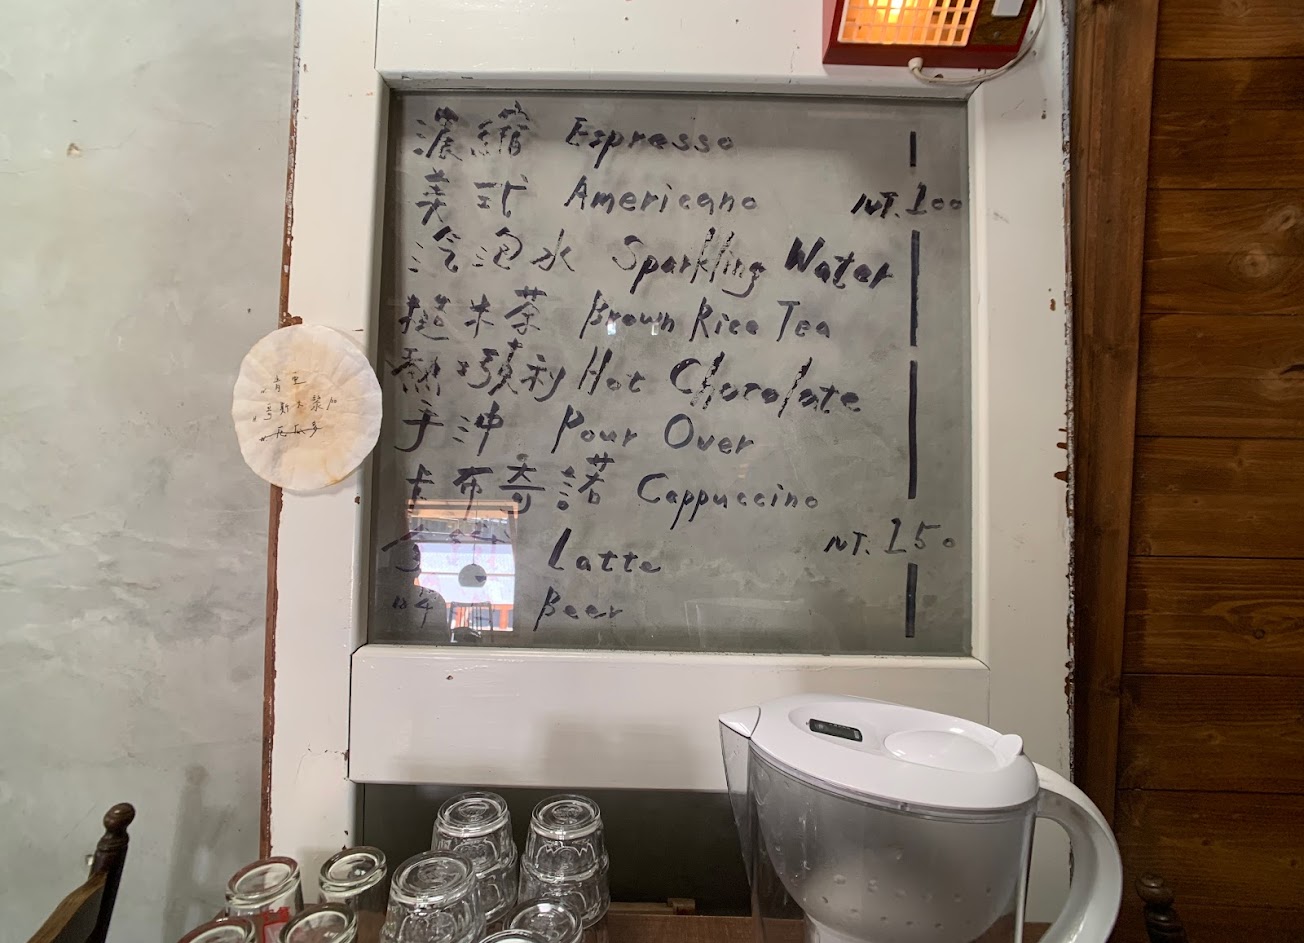 濃縮 Espresso
美式 Americano NT.100
汽泡水 Sparkling Water
糙米茶 Brown Rice Tea
熱巧克利 Hot Chocolate
手沖 Pour Over
卡布奇諾 Cappuccino
拿鐵 Latte NT.150
啤酒 Beer